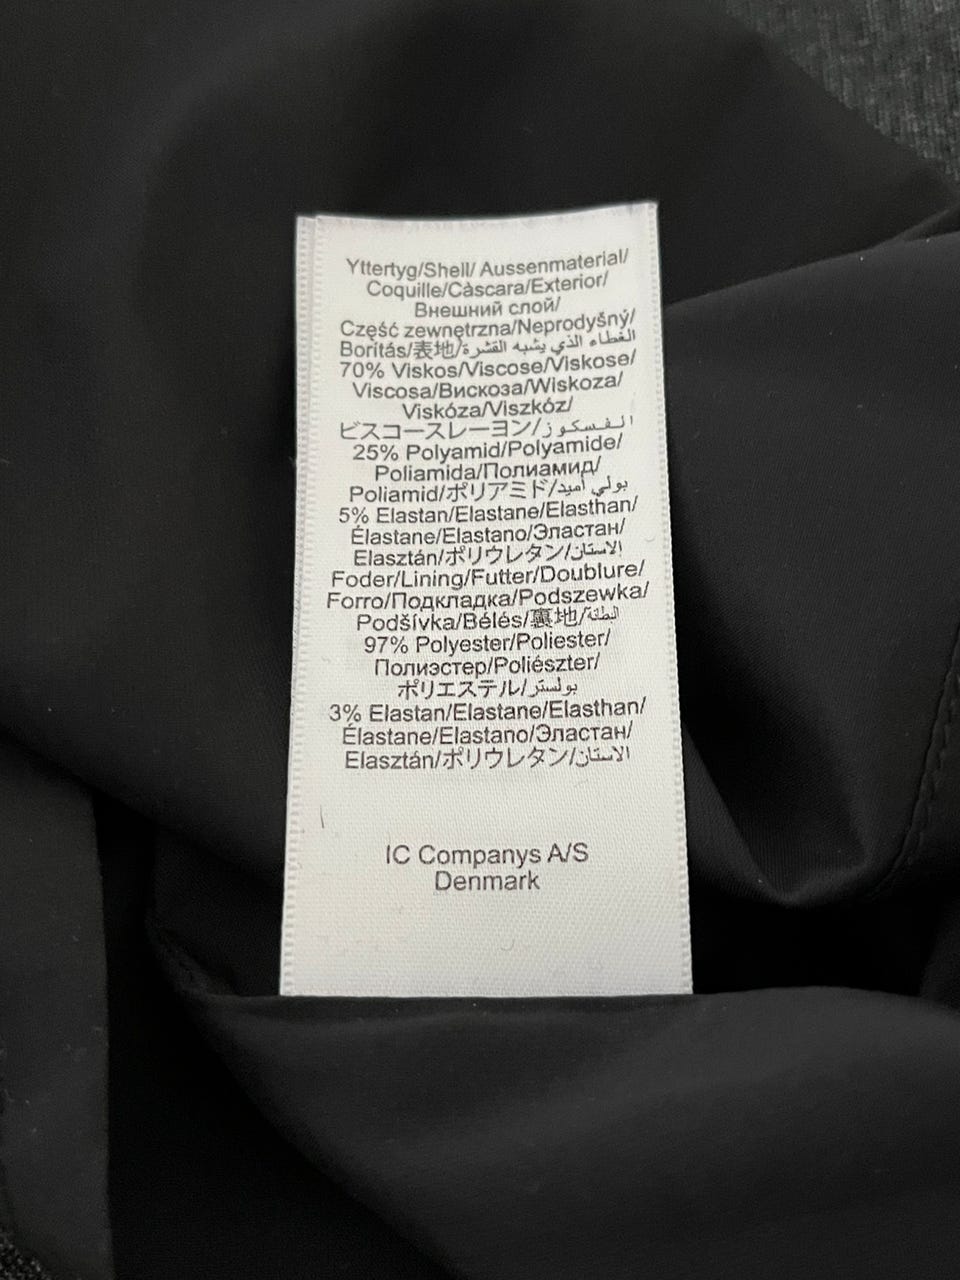 Yttertyg/Shell/ Aussenmaterial/
Coquille/Càscara/Exterior/
Внешний слой/
Część zewnętrzna/Neprodyšný/
Borítás/表地/الغطاء الذي يشبه القشرة/
70% Viskos/Viscose/Viskose/
Viscosa/Вискоза/Wiskoza/
Viskóza/Viszkóz/
ビスコースレーヨン/الفسكوز/
25% Polyamid/Polyamide/
Poliamida/Полиамид/
Poliamid/ポリアミド/بولي أميد/
5% Elastan/Elastane/Elasthan/
Élastane/Elastano/Эластан/
Elasztán/ポリウレタン/الاستان/
Foder/Lining/Futter/Doublure/
Forro/Подкладка/Podszewka/
Podšívka/Bélés/裏地/البطانة/
97% Polyester/Poliester/
Полиэстер/Poliészter/
ポリエステル/بولستر/
3% Elastan/Elastane/Elasthan/
Élastane/Elastano/Эластан/
Elasztán/ポリウレタン/الاستان/
IC Companys A/S
Denmark